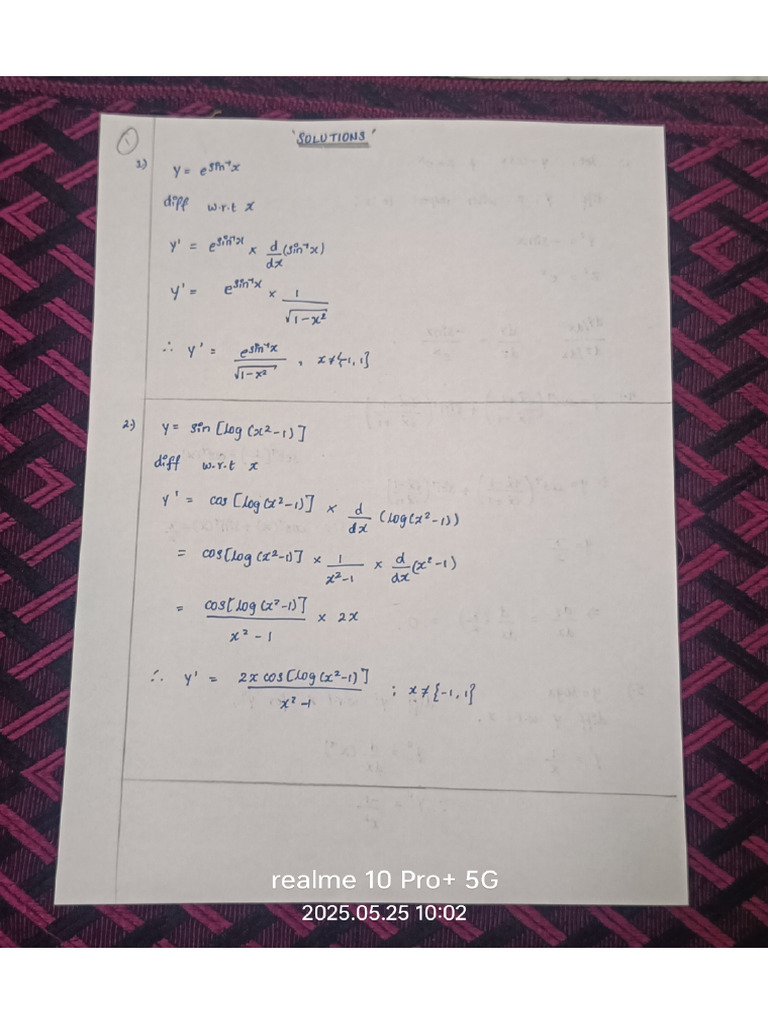 ①
'SOLUTIONS'
1)
y = e^sin⁻¹x
diff w.r.t x
y' = e^sin⁻¹x × d/dx (sin⁻¹x)
y' = e^sin⁻¹x × 1/√1-x²
∴ y' = e^sin⁻¹x/√1-x² , x≠{-1,1}
2) y = sin[log(x²-1)]
diff w.r.t x
y' = cos[log(x²-1)] × d/dx (log(x²-1))
= cos[log(x²-1)] × 1/x²-1 × d/dx (x²-1)
= cos[log(x²-1)]/x²-1 × 2x
∴ y' = 2x cos[log(x²-1)]/x²-1 ; x≠{-1,1}
realme 10 Pro+ 5G
2025.05.25 10:02